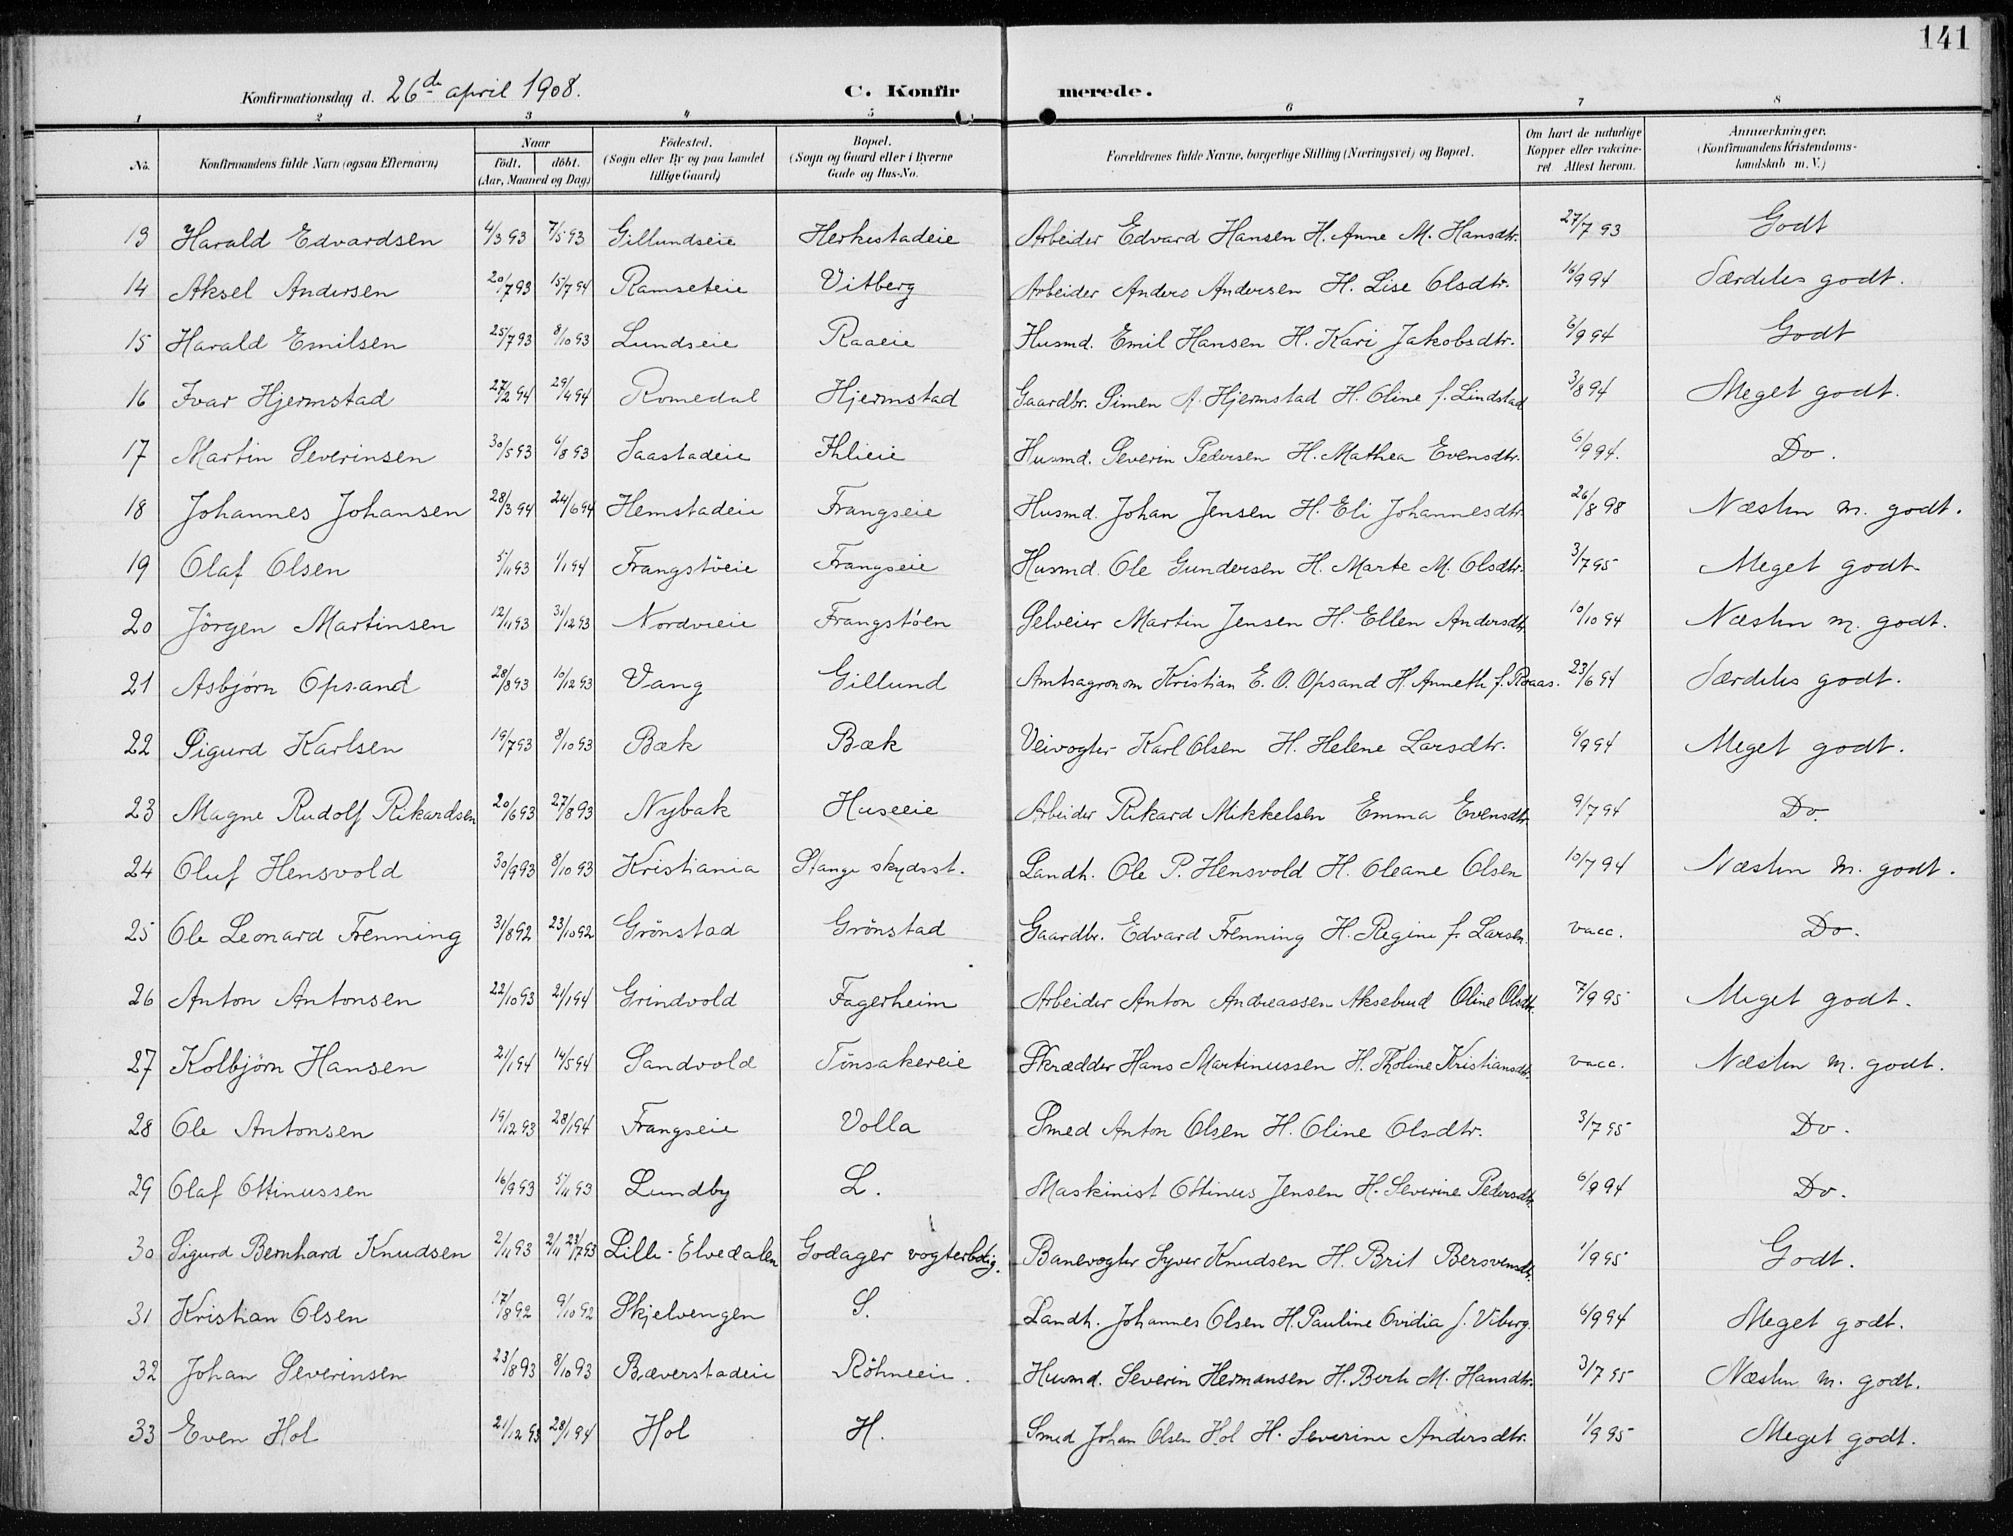 141
Konfirmationsdag d. 26de april 1908. C. Konfirmerede.
1 2 3 4 5 6 7 8
No. Konfirmandens fulde Navn (ogsaa Efternavn) Naar født. døbt. (Aar, Maaned og Dag) Fødested. (Sogn eller By og paa Landet tillige Gaard) Bopæl. (Sogn og Gaard eller i Byerne Gade og Hus-No. Forældrenes fulde Navne, borgerlige Stilling (Næringsvei) og Bopæl. Om havt de naturlige Kopper eller vakcineret. Attest herom. Anmærkninger. (Konfirmandens Kristendomskundskab m. V.)
13 Harald Edvardsen 4/3 93 7/5 93 Gillundseie Herkestadeie Arbeider Edvard Hansen H. Anne M. Hansdtr. 27/7 93 Godt
14 Aksel Andersen 20/7 93 15/7 94 Ramseteie Vitberg Arbeider Anders Andersen H. Lise Olsdtr. 16/9 94 Særdeles godt.
15 Harald Emilsen 25/7 93 8/10 93 Lundseie Raaeie Husmd. Emil Hansen H. Kari Jakobsdtr. 6/9 94 Godt
16 Ivar Hjermstad 27/2 94 29/4 94 Romedal Hjermstad Gaardbr. Simen A. Hjermstad H. Oline f. Lindstad 3/8 94 Meget godt.
17 Martin Severinsen 30/5 93 6/8 93 Saastadeie Ihlieie Husmd. Severin Pedersen H. Mathea Evensdtr. 6/9 94. Do.
18 Johannes Johansen 28/3 94 24/6 94 Hemstadeie Frangseie Husmd. Johan Jensen H. Eli Johannesdtr. 26/8 98 Næsten m. godt.
19 Olaf Olsen 5/11 93 1/1 94 Frangstöeie Frangseie Husmd. Ole Gundersen H. Marte M. Olsdtr. 3/7 95 Meget godt
20 Jörgen Martinsen 12/11 93 31/12 93 Nordvieie Frangstöen Selveier Martin Jensen H. Ellen Andersdtr. 10/10 94 Næsten m. godt.
21 Asbjørn Opsand 28/8 93 10/12 93 Vang Gillund Amtsagronom Kristian E. O. Opsand H. Anneth f. Raaas. 23/6 94 Særdeles godt.
22 Sigurd Karlsen 19/7 93 8/10 93 Bæk Bæk Veivogter Karl Olsen H. Helene Larsdtr. 6/9 94 Meget godt.
23 Magne Rudolf Rikardsen 20/6 93 27/8 93 Nybak Huseeie Arbeider Rikard Mikkelsen Emma Evensdtr. 9/7 94 Do.
24 Oluf Hensvold 30/9 93 8/10 93 Kristiania Stange skydsst. Landh. Ole P. Hensvold H. Oleane Olsen 10/7 94 Næsten m. godt.
25 Ole Leonard Frenning 31/8 92 23/10 92 Grönstad Grönstad Gaardbr. Edvard Frenning H. Regine f. Larsen. vacc. Do.
26 Anton Antonsen 22/10 93 21/1 94 Grindvold Fagerheim Arbeider Anton Andreassen Aksebud Oline Olsdtr. 7/9 95 Meget godt.
27 Kolbjørn Hansen 21/1 94 14/5 94 Sandvold Tönsakereie Skrædder Hans Martinussen H. Tholine Kristiansdtr. vacc. Næsten m. godt.
28 Ole Antonsen 19/12 93 28/1 94 Frangseie Volla Smed Anton Olsen H. Oline Olsdtr. 3/7 95 Do.
29 Olaf Ottinussen 16/9 93 5/11 93 Lundby L. Maskinist Ottinus Jensen H. Severine Pedersdtr. 6/9 94 Do.
30 Sigurd Bernhard Knudsen 2/11 93 2/11 23/7 93 Lille-Elvedalen Godager vogterbolig. Banevogter Syver Knudsen H. Brit Bersvensdtr. 1/9 95 Godt.
31 Kristian Olsen 17/8 92 9/10 92 Skjelvengen S. Landh. Johannes Olsen H. Pauline Ovidia f. Viberg. 6/9 94 Meget godt.
32 Johan Severinsen 23/8 93 8/10 93 Bæverstadeie Röhneeie. Husmd. Severin Hermansen H. Berte M. Hansdtr. 3/7 95 Næsten m. godt.
33 Even Hol 21/12 93 28/1 94 Hol H. Smed Johan Olsen Hol H. Severine Andersdtr. 1/9 95 Meget godt.